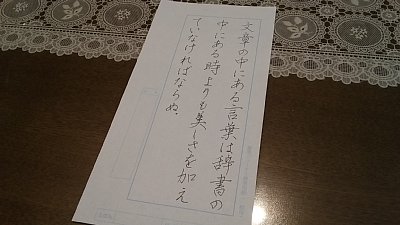 文章の中にある言葉は辞書の
中にある時よりも美しさを加え
ていなければならぬ。